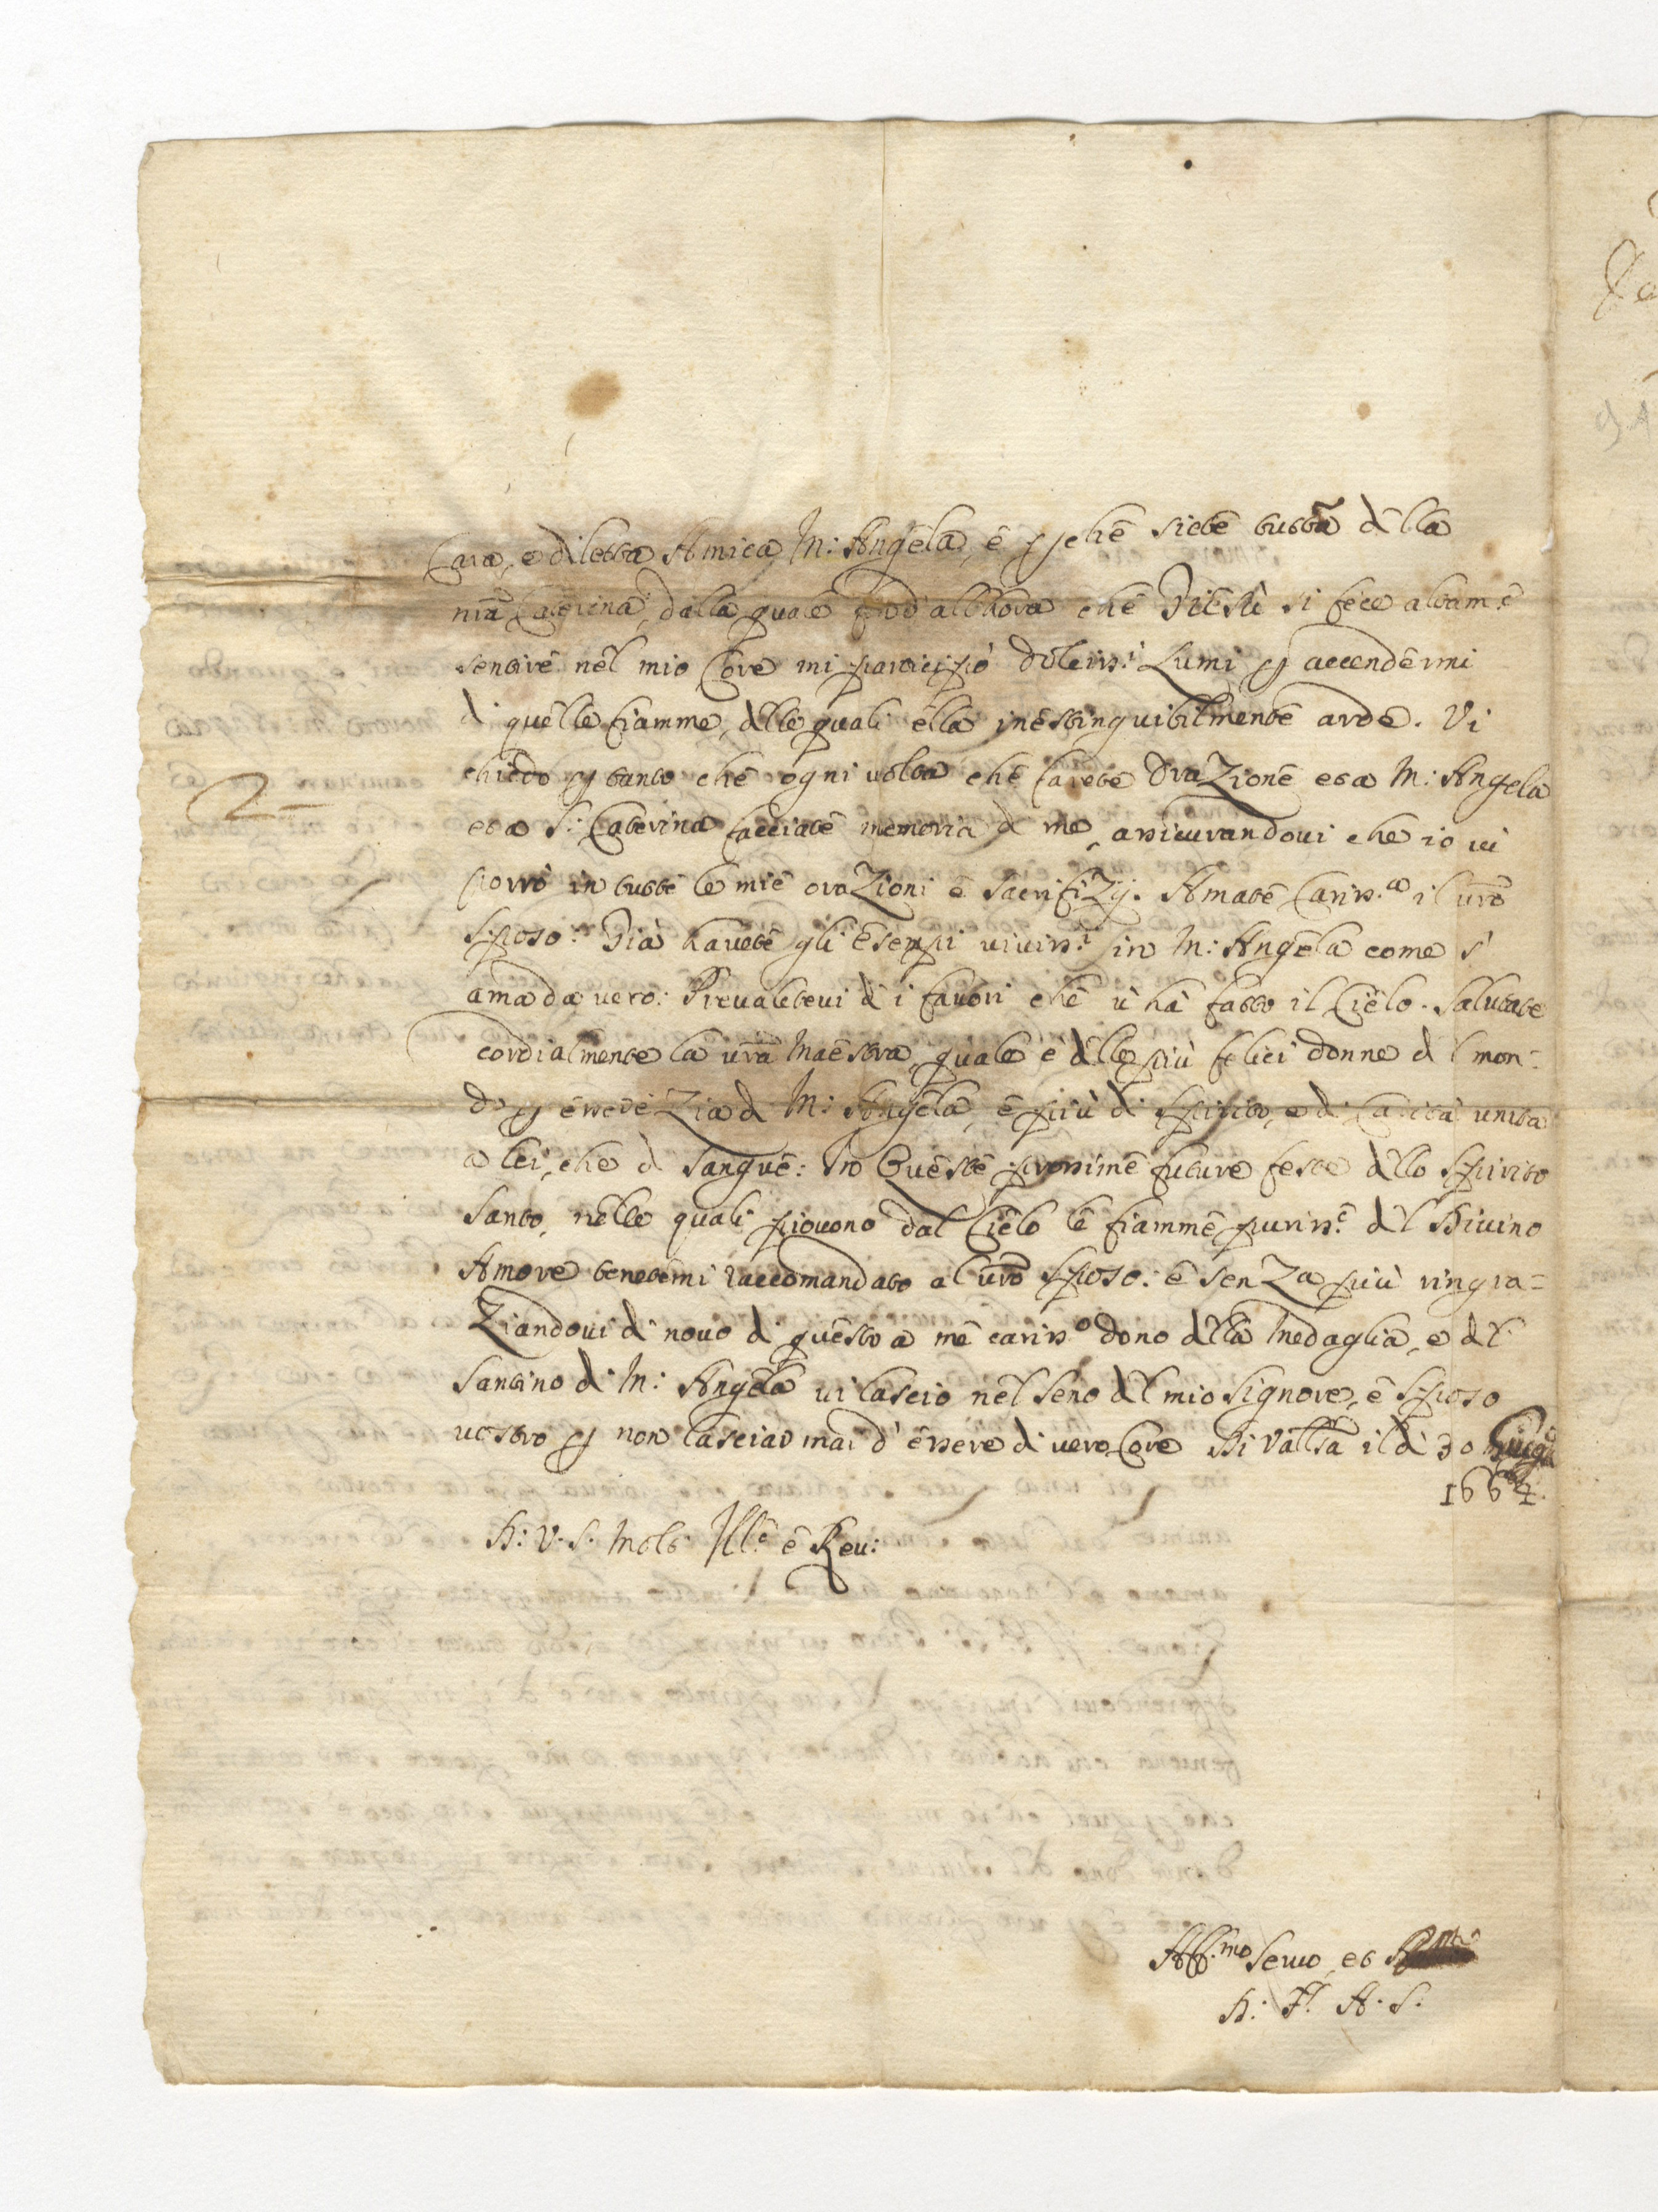 Cara, e diletta Amica M: Angela, e pche siete tutta della
nra Caterina, dalla quale find' allhora che Giesù si fece altam.e
sentire nel mio Core mi participò dolciss.i Lumi p accendermi
di quelle fiamme, delle quali ella inestinguibilmente arde. Vi
chiedo p tanto che ogni volta che farete Orazione et a M: Angela
et a S: Caterina facciate memoria di me, assicurandovi che io vi
porrò in tutte le mie orazioni e sacrifizij. Amate Cariss.a il vro
Sposo: Già havete gli esempi viviss.i in M: Angela come s'
ama da vero: Prevaletevi di i favori che v'hà fatto il Cielo. Salutate
cordialmente la vra Maestra, quale è delle più felici donne del mon=
do p essere Zia di M: Angela, e più di Spirito, e di Carità unita
a lei, che di sangue: In Queste prossime future feste dello Spirito
Santo, nelle quali piovono dal Cielo le fiamme puriss.e del Divino
Amore tenetemi raccomandato al vro Sposo: e senza più ringra=
ziandovi di novo di questo a me cariss.o dono della Medaglia, e del
Santino di M: Angela vi lascio nel seno del mio Signore, e Sposo
vostro p non lasciar mai d'essere di vero Core Di Valsa il dì 30
1664.
D: V. S. Molt' Ill.e e Rev:
Aff.mo Servo et
D: F. A. S.
2-